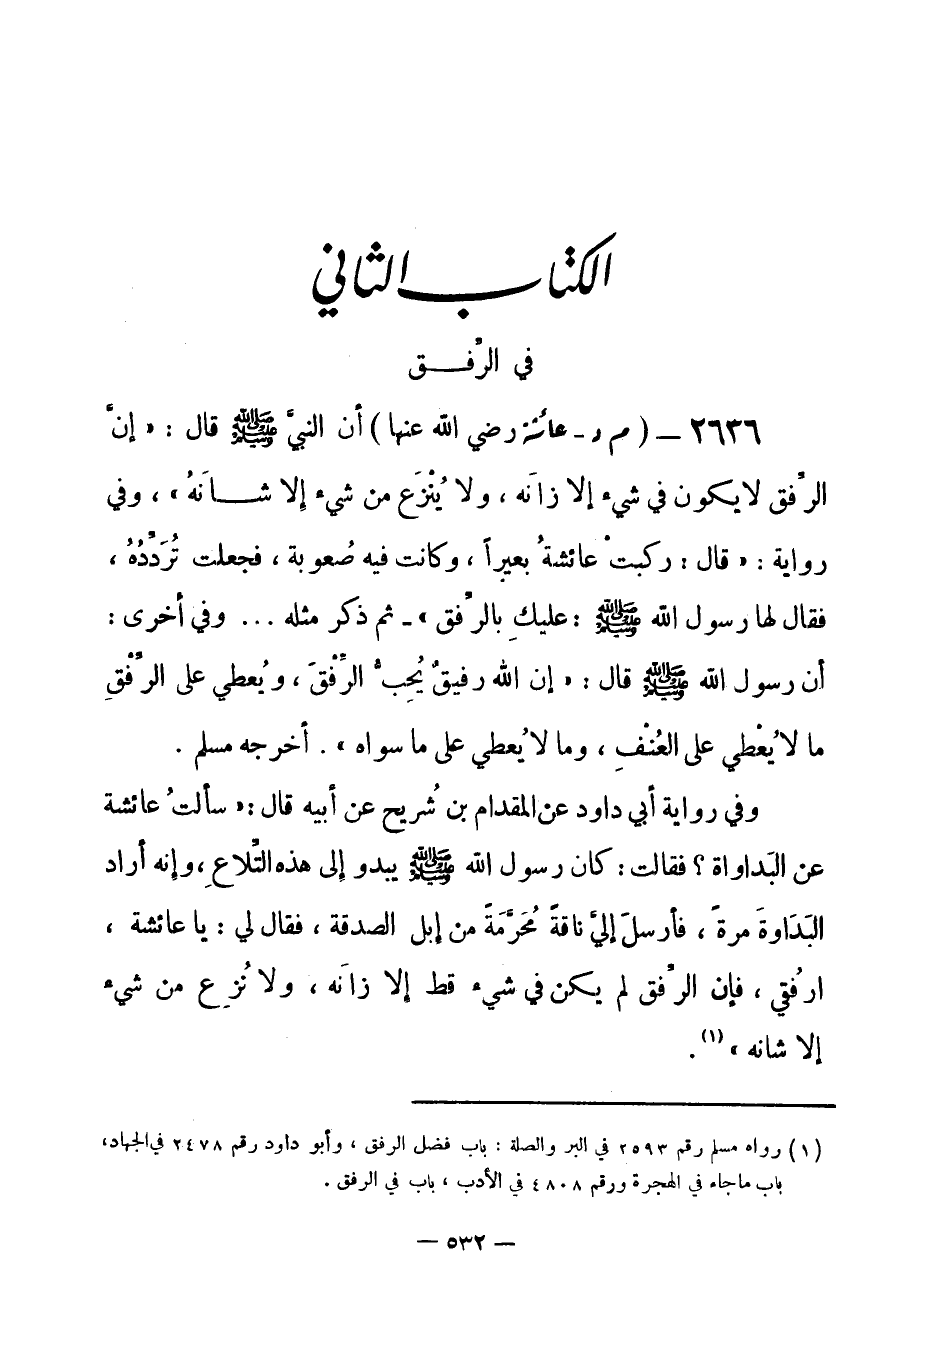 الكتاب الثاني
في الرِّفق
٢٦٣٦ – ( م د - عائشة رضي الله عنها ) أن النبيَّ ﷺ قال : « إنَّ
الرِّفق لا يكون في شيء إلا زانَه ، ولا يُنْزَع من شيء إِلا شانَهُ » ، وفي
رواية : « قال : ركبتْ عائشةُ بعيراً ، وكانت فيه صُعوبة ، فجعلت تُرَدِّدُهُ ،
فقال لها رسول الله ﷺ : عليكِ بالرِّفق » - ثم ذكر مثله ... وفي أخرى :
أن رسول الله ﷺ قال : « إن الله رفيقٌ يُحِبُّ الرِّفْقَ ، ويُعطي على الرِّفْقِ
ما لا يُعْطي على العُنْفِ ، وما لا يُعطي على ما سواه » . أخرجه مسلم .
وفي رواية أبي داود عن المقدام بن شُريح عن أبيه قال : « سألتُ عائشة
عن البَداواة ؟ فقالت : كان رسول الله ﷺ يبدو إلى هذه التِّلاعِ ، وإنه أراد
البَدَاوةَ مرةً ، فأرسلَ إليَّ ناقةً مُحَرَّمَةً من إبل الصدقة ، فقال لي : يا عائشة ،
ارْفُقي ، فإن الرِّفق لم يكن في شيء قط إلا زانَه ، ولا نُزِع من شيء
إلا شانه » (١) .
(١) رواه مسلم رقم ٢٥٩٣ في البر والصلة : باب فضل الرفق ، وأبو داود رقم ٢٤٧٨ في الجهاد،
باب ما جاء في الهجرة ورقم ٤٨٠٨ في الأدب ، باب في الرفق .
– ٥٣٢ –